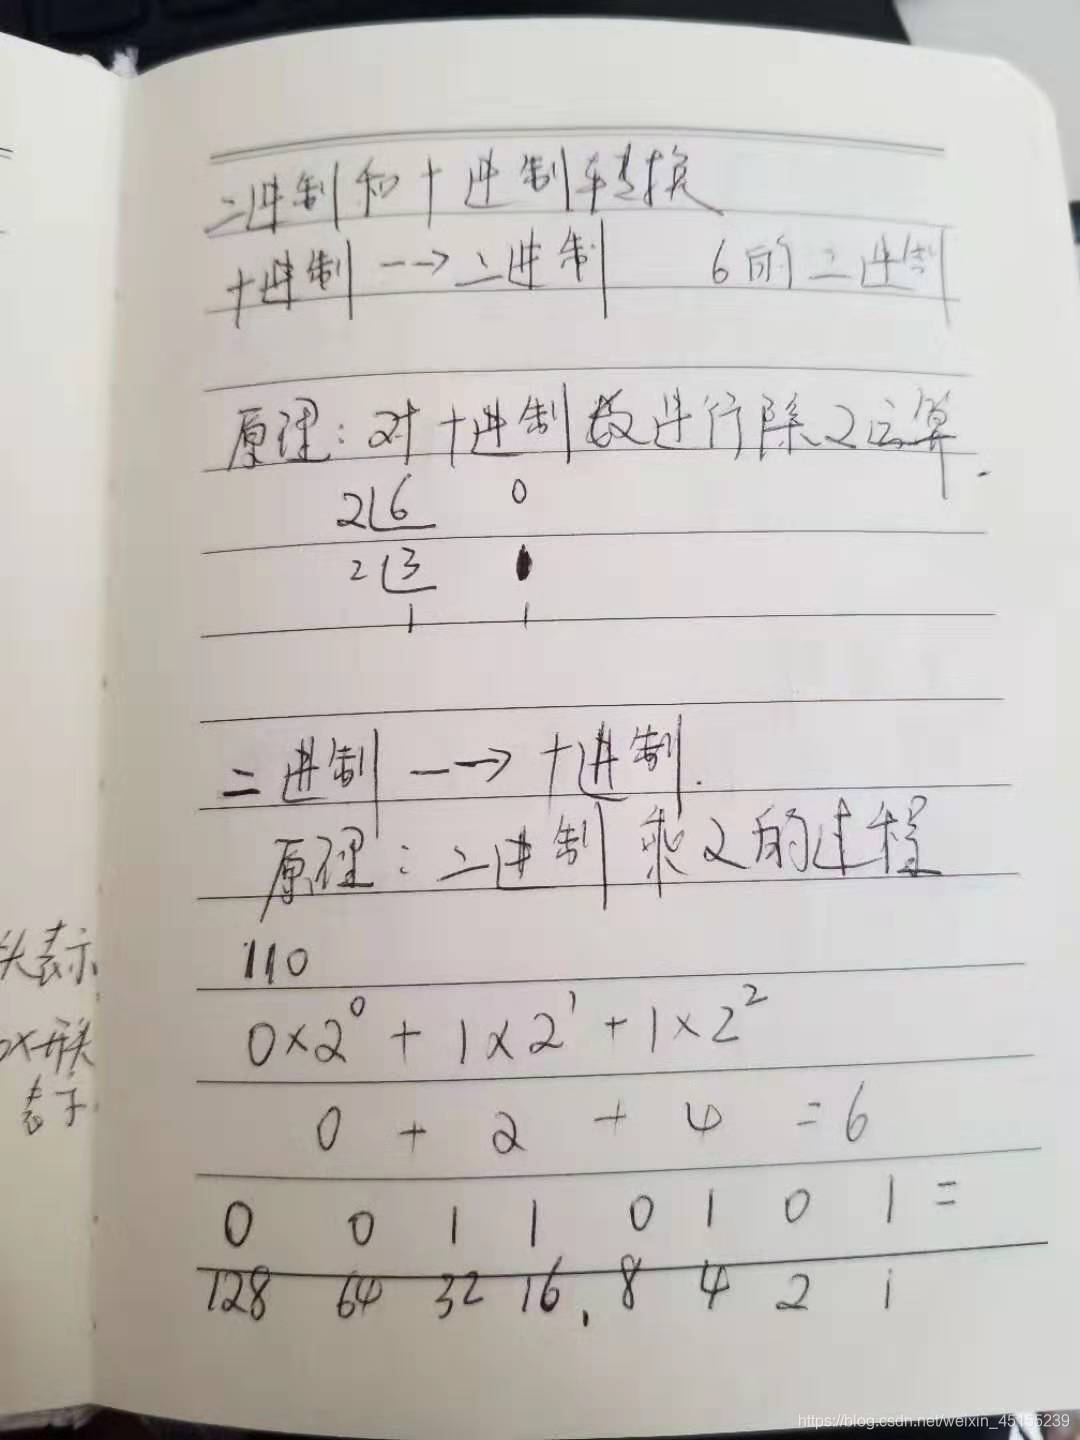 二进制和十进制转换
十进制 --→ 二进制 6的二进制
原理：对十进制数进行除2运算.
2 6 0
2 3 1
1 1
二进制 --→ 十进制.
原理：二进制乘2的过程
110
0×2⁰ + 1×2¹ + 1×2²
0 + 2 + 4 = 6
0 0 1 1 0 1 0 1 =
128 64 32 16 8 4 2 1
头表示
0x开头
表示
https://blog.csdn.net/weixin_45155239